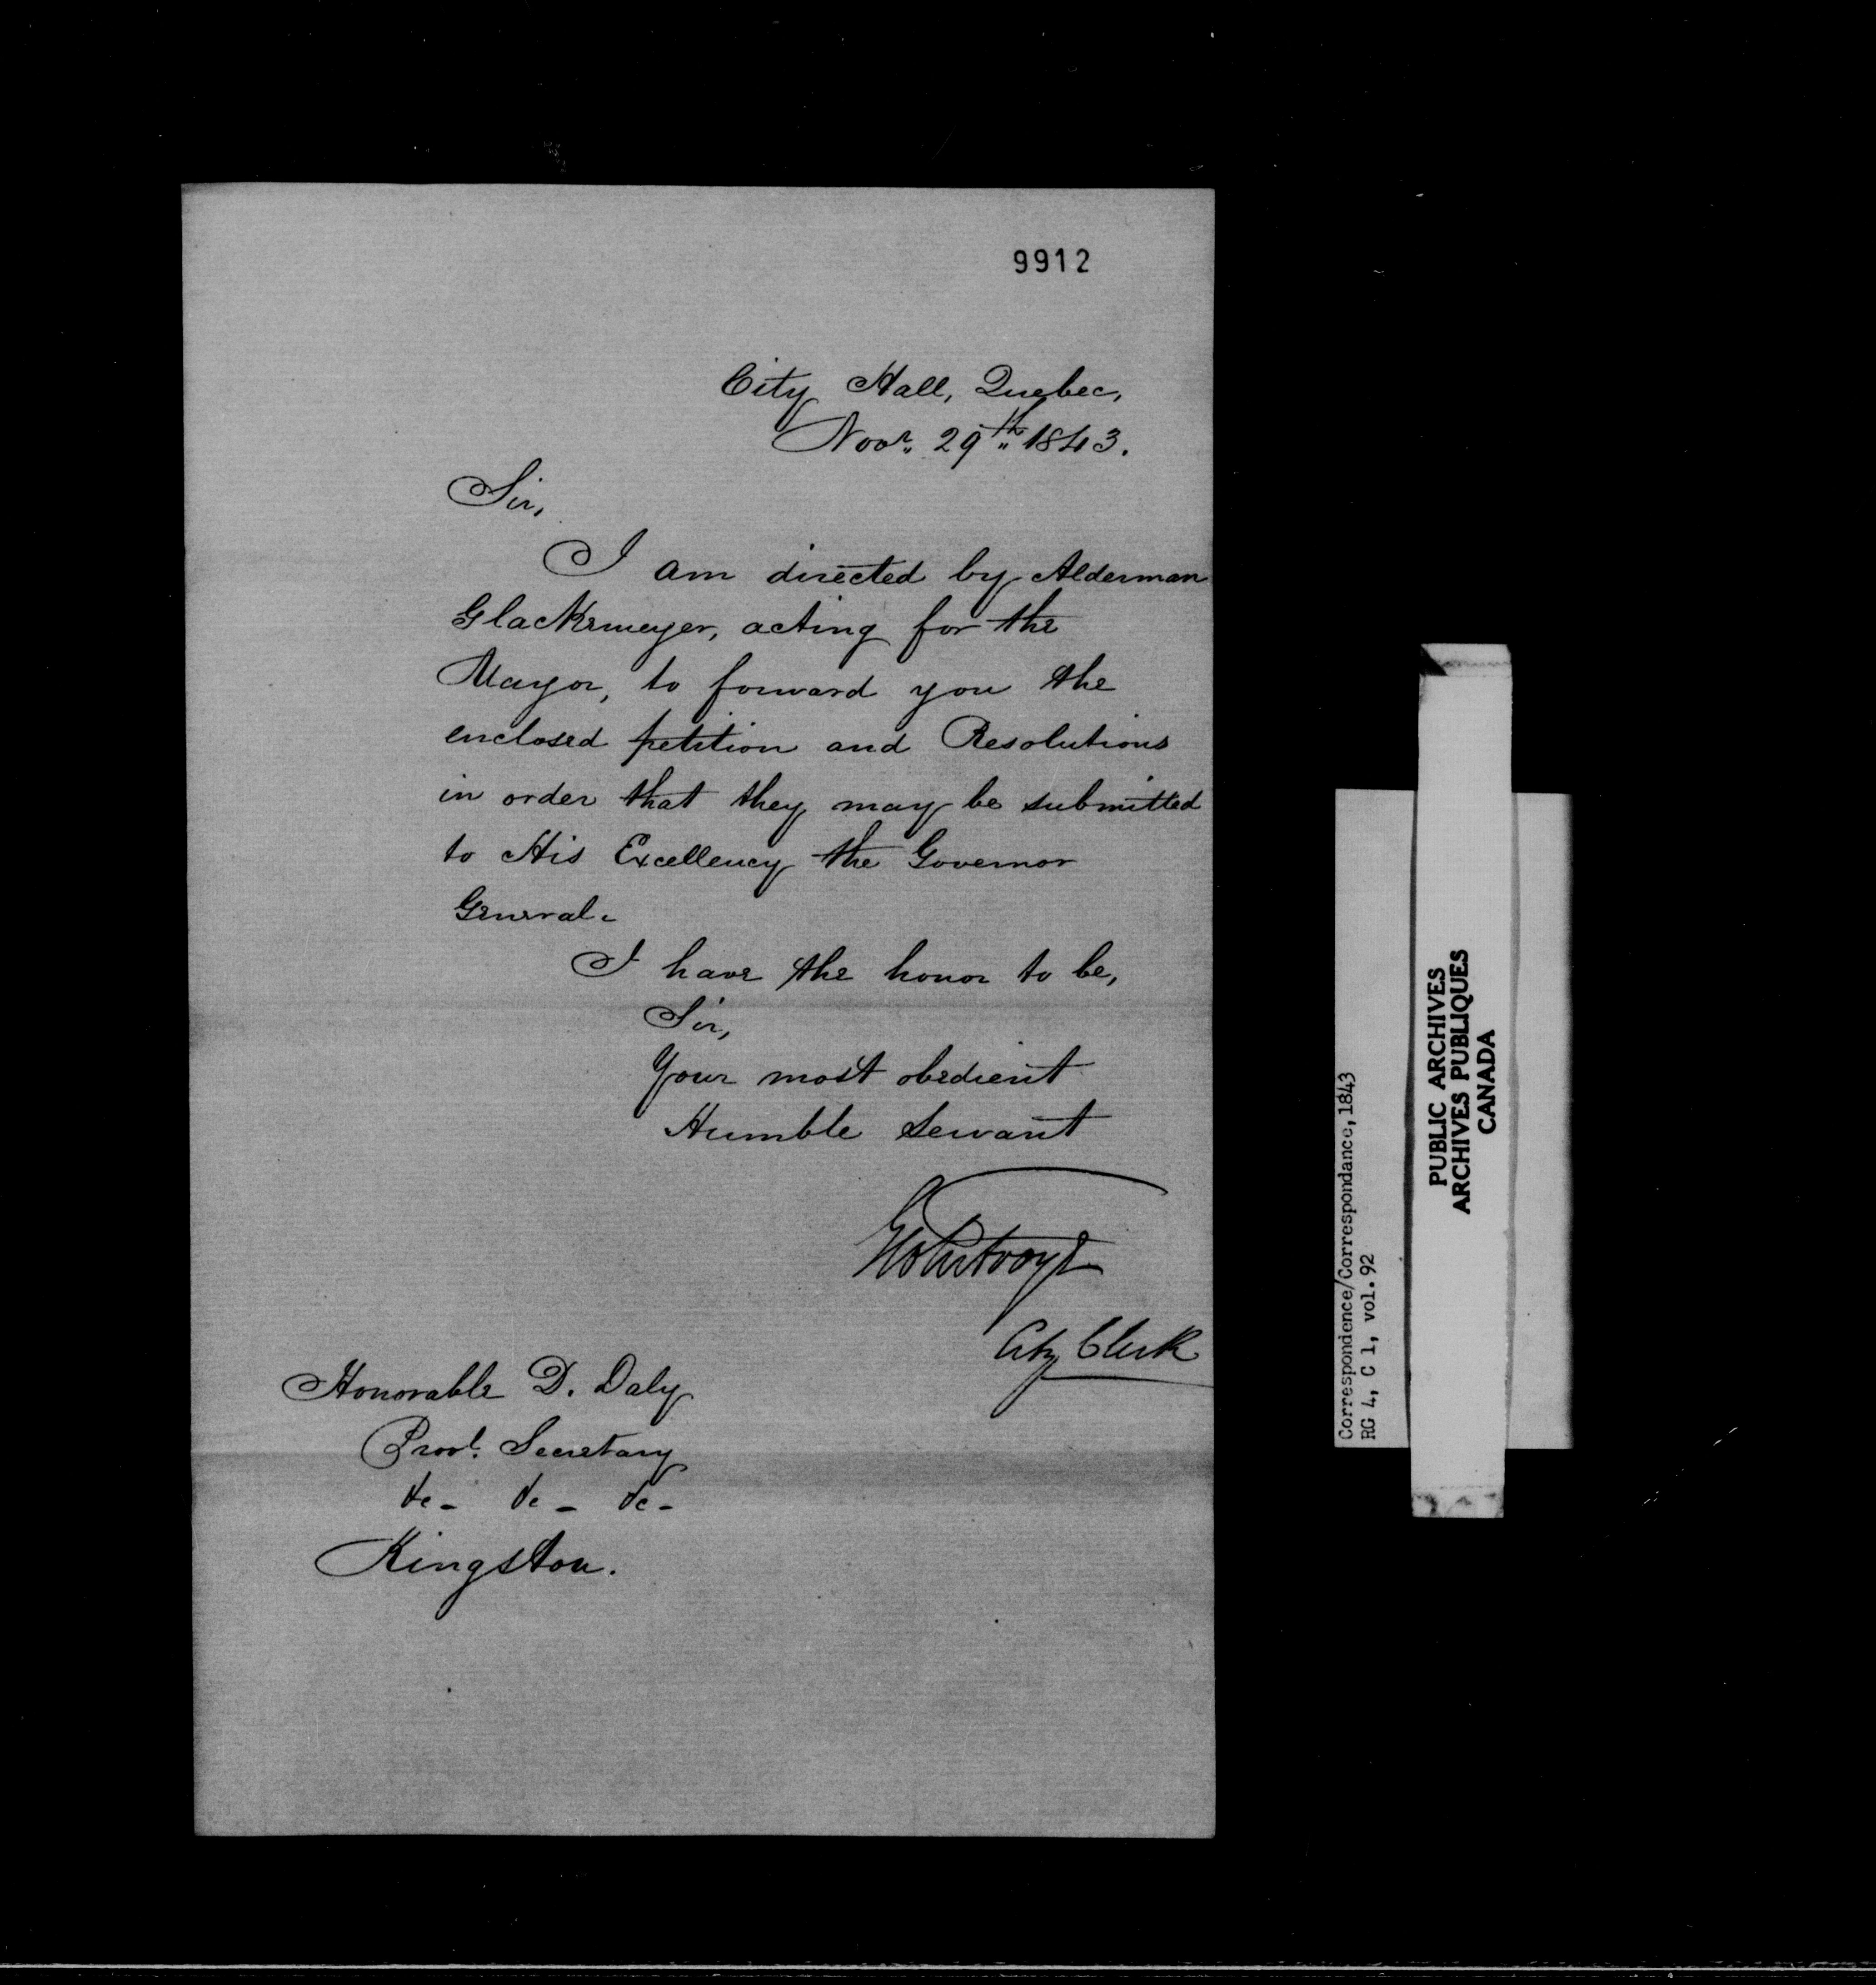 9912
City Hall, Quebec,
Novr. 29th 1843.
Sir,
I am directed by Alderman
Glackemeyer, acting for the
Mayor, to forward you the
enclosed petition and Resolutions
in order that they may be submitted
to His Excellency the Governor
General.
I have the honor to be,
Sir,
Your most obedient
Humble Servant
City Clerk
Honorable D. Daly
Provl. Secretary
&c - &c - &c -
Kingston.
Correspondence/Correspondance, 1843
RG 4, C 1, vol. 92
PUBLIC ARCHIVES
ARCHIVES PUBLIQUES
CANADA